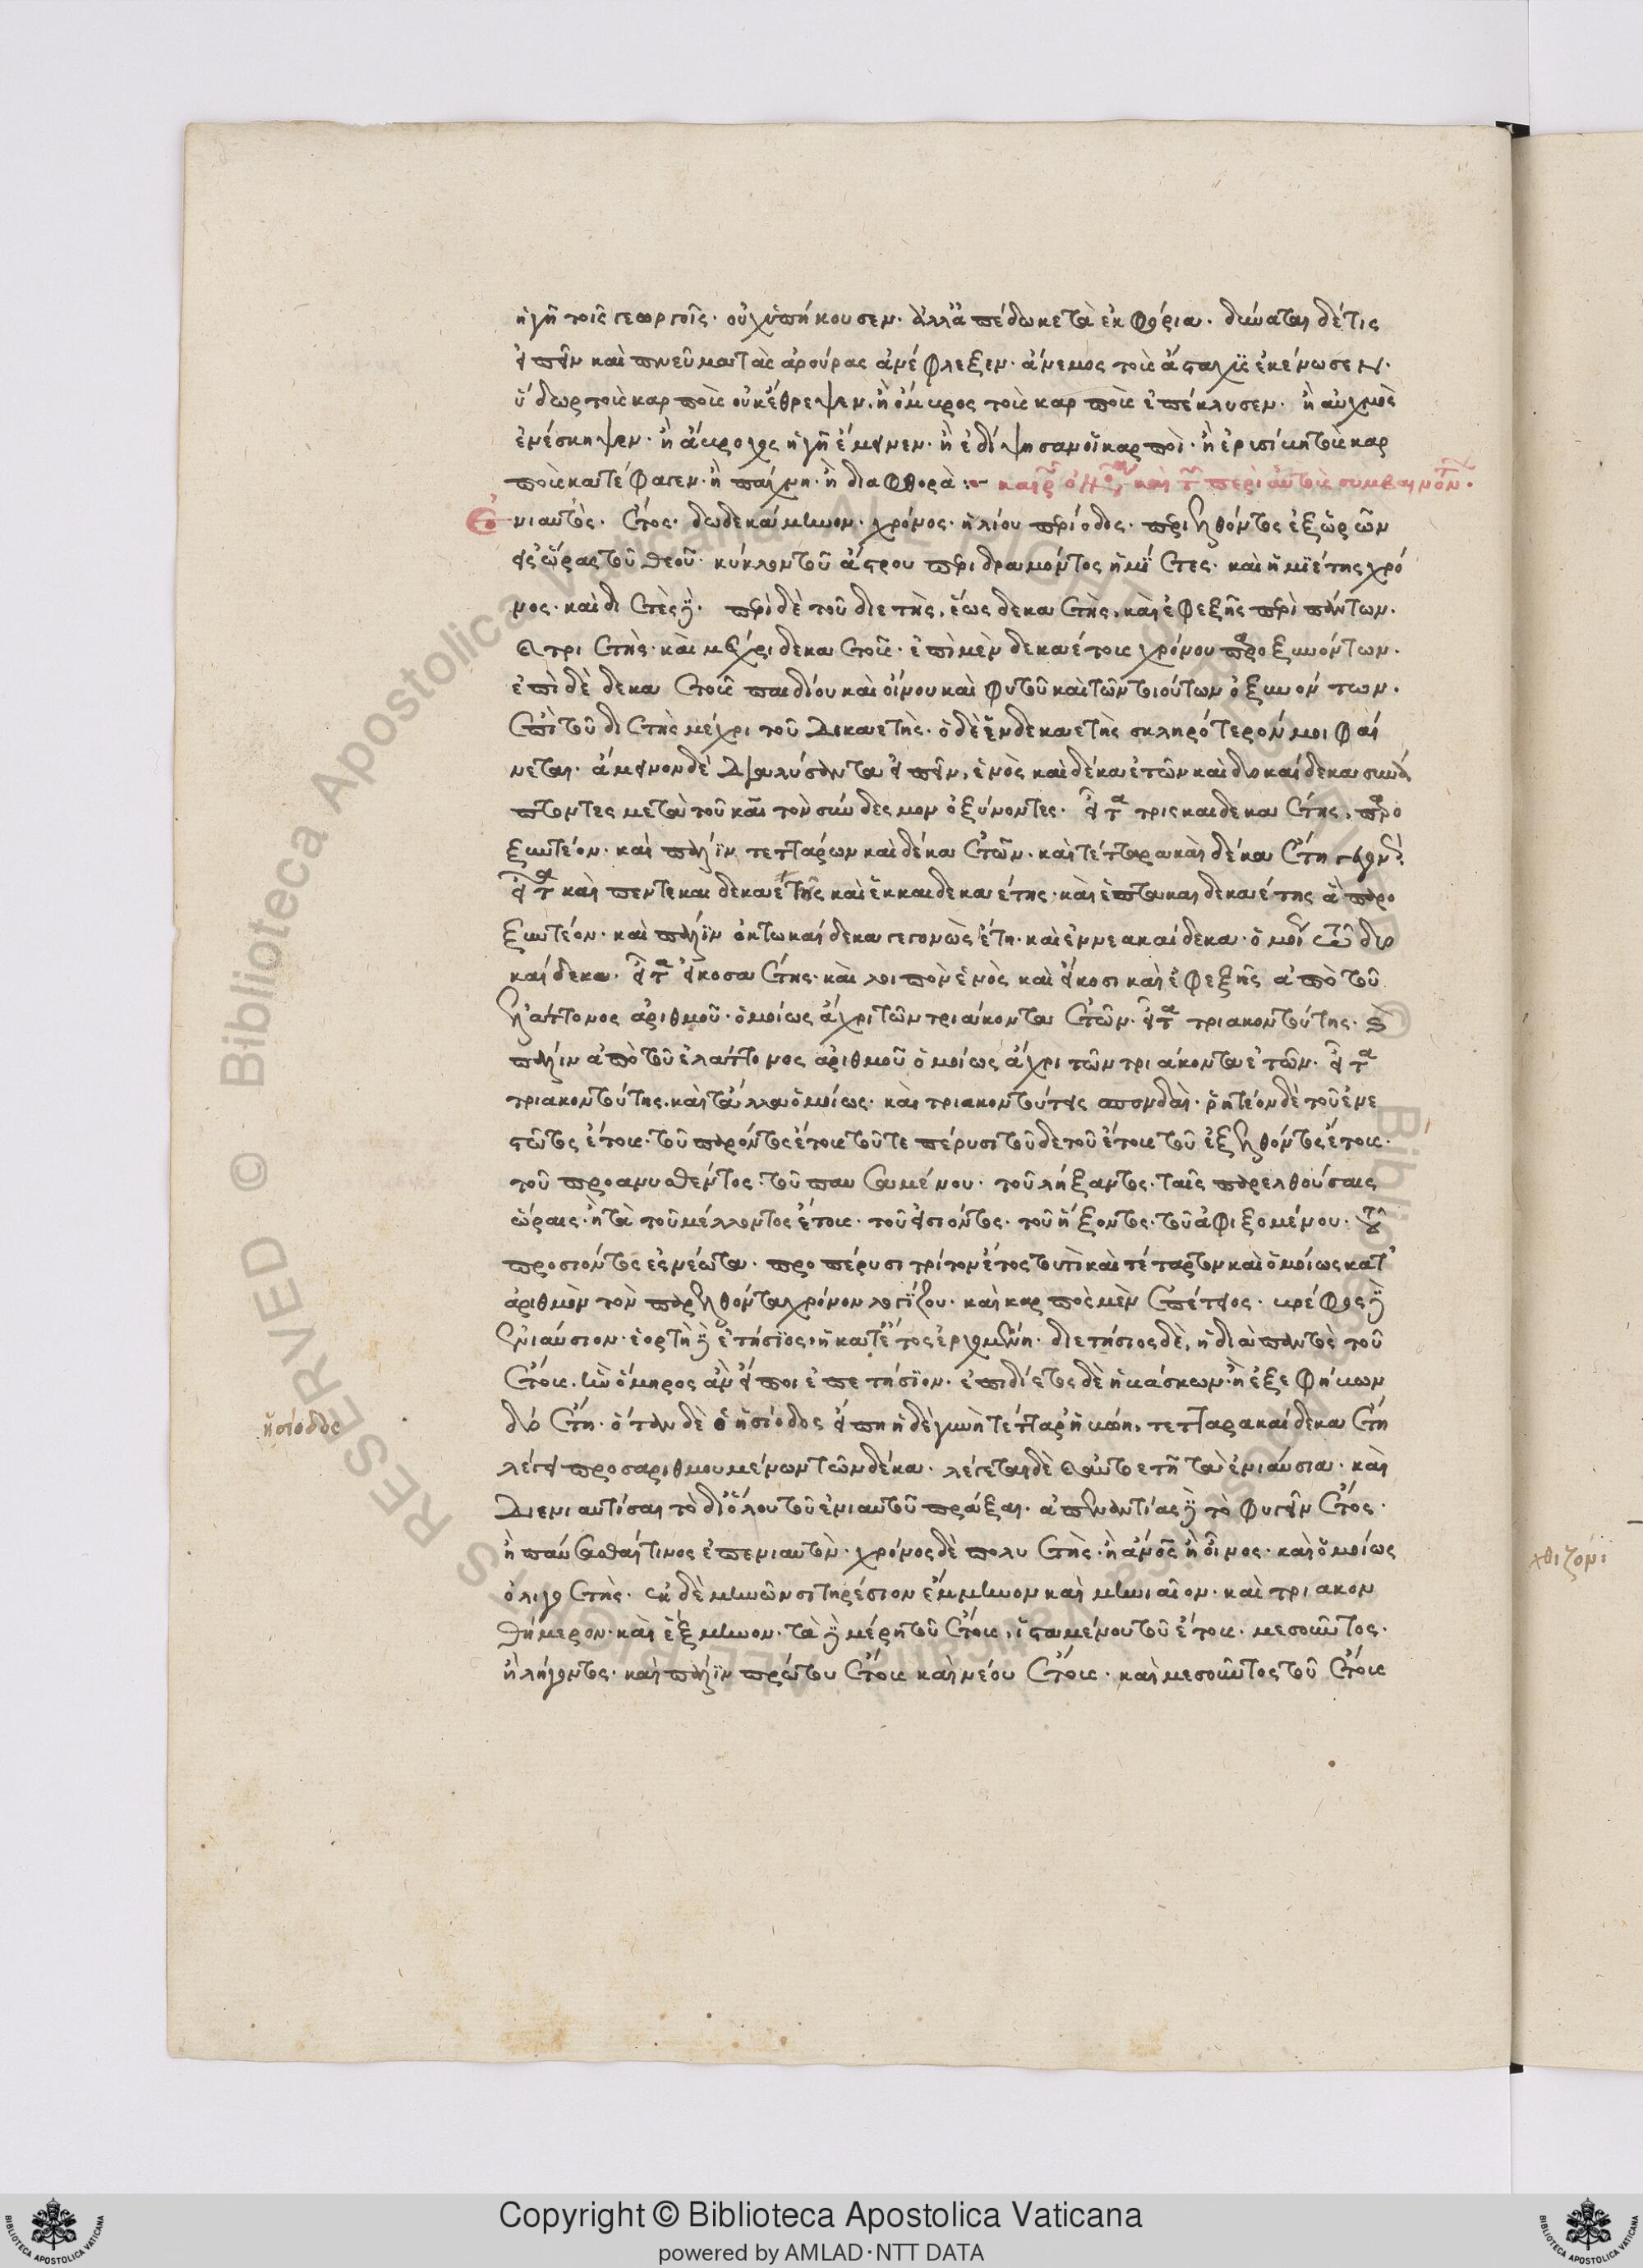 ἡ γῆ τοῖς γεωργοῖς· οὐχ ὑπήκουσεν· ἀλλ' ἀπέδωκε τὰ ἐκφόρια· δύναται δέ τις
εἰπεῖν καὶ πνεῦμα τὰς ἀρούρας ἀνέφλεξεν· ἄνεμος τοὺς ἀστάχυς ἐκένωσεν·
ὕδωρ τοὺς καρποὺς οὐκ ἔθρεψεν, ἢ ὄμβρος τοὺς καρποὺς ἐπέκλυσεν· ἢ αὐχμὸς
ἐνέσκηψεν· ἢ ἄβροχος ἡ γῆ ἔμεινεν· ἢ ἐδίψησαν οἱ καρποὶ· ἢ ἐρισίβη τοὺς καρ
ποὺς κατέφαγεν· ἢ πάχνη· ἢ διαφθορά:
ἐνιαυτός· ἔτος· δωδεκάμηνον· χρόνος· ἡλίου περίοδος· περιελθόντος ἐξ ὡρῶν
εἰς ὥρας τοῦ θεοῦ· κύκλον τοῦ ἄστρου περιδραμόντος ἡμίετες· καὶ ἡμιέτης χρό
νος· καὶ διετὲς· περὶ δὲ τοῦ διετὴς, ἕως δεκαετὴς, καὶ ἐφεξῆς περὶ πάντων·
τριετὴς· καὶ μέχρι δεκαετοῦς· ἐπὶ μὲν δεκαέτους χρόνου παροξυνόντων·
ἐπὶ δὲ δεκαετοῦς παιδίου καὶ οἴνου καὶ φυτοῦ καὶ τῶν τοιούτων ὀξυνόντων·
ἐπὶ τοῦ διετὴς μέχρι τοῦ δεκαετής· ὁ δὲ ἑνδεκαετὴς σκληρότερόν μοι φαί
νεται· ἄμεινον δὲ διαλύσαντα εἰπεῖν, ἑνὸς καὶ δέκα ἐτῶν καὶ δυοκαίδεκα συνά
πτοντες μετὰ τοῦ καὶ τὸν σύνδεσμον ὀξύνοντες· τρισκαιδεκαέτης, παρο
ξυτέον· καὶ πάλιν τεττάρων καὶ δέκα ἐτῶν· καὶ τέτταρα καὶ δέκα ἔτη
καὶ πεντεκαιδεκαέτης καὶ ἑκκαιδεκαέτης· καὶ ἑπτακαιδεκαέτης ἃ παρο
ξυτέον· καὶ πάλιν ὀκτωκαίδεκα γεγονὼς ἔτη· καὶ ἐννεακαίδεκα· ὁμοίως τῷ δυο
καίδεκα· εἰκοσαέτης· καὶ λοιπὸν ἑνὸς καὶ εἴκοσι καὶ ἐφεξῆς ἀπὸ τοῦ
ἐλάττονος ἀριθμοῦ· ὁμοίως ἄχρι τῶν τριάκοντα ἐτῶν· τριακοντούτης·
πάλιν ἀπὸ τοῦ ἐλάττονος ἀριθμοῦ ὁμοίως ἄχρι τῶν τριάκοντα ἐτῶν·
τριακοντούτης· καὶ τἄλλα ὁμοίως· καὶ τριακοντούτεις σπονδαὶ· ῥητέον δὲ τοῦ ἐνε
στῶτος ἔτους· τοῦ παρόντος ἔτους τοῦ τε πέρυσι τοῦδε τοῦ ἔτους τοῦ ἐξελθόντος ἔτους·
τοῦ προανυσθέντος· τοῦ παυσαμένου· τοῦ λήξαντος· ταῖς παρελθούσαις
ὥραις· ἢ τὰ τοῦ μέλλοντος ἔτους· τοῦ εἰσιόντος· τοῦ ἥξοντος· τοῦ ἀφιξομένου· τοῦ
προσιόντος ἐς νέωτα· προπέρυσι τρίτον ἔτος τουτὶ καὶ τέταρτον καὶ ὁμοίως κατ'
ἀριθμὸν τὸν παρελθόντα χρόνον λογίζου· καὶ καρπὸς μὲν ἐπέτειος· βρέφος
ἐνιαύσιον· ἑορτὴ ἐτήσιος, ἡ κατ' ἔτος ἐρχομένη· διετήσιος δὲ, ἡ διὰ παντὸς τοῦ
ἔτους· ἣν ὅμηρος ἂν εἴποι ἐπετήσιον· ἐπιδίετες δὲ ἡβάσκων· ἢ ἐξ ἐφήβων
δύο ἔτη· ὅταν δὲ ὁ ἡσίοδος εἴπῃ ἡ δὲ γυνὴ τέτταρ' ἡβώῃ, τετταρακαίδεκα ἔτη
ἡσίοδος
λέγει προσαριθμουμένων τῶν δέκα· λέγεται δὲ αὐτοετῆ τὰ ἐνιαύσια· καὶ
διενιαυτίσαι τὸ δι' ὅλου τοῦ ἐνιαυτοῦ πράξαι· ἀπεναντίας τὸ φυγεῖν ἔτος·
ἢ παύσασθαί τινος ἐπ' ἐνιαυτὸν· χρόνος δὲ πολυετὴς· ἢ ἀνὴρ ἢ οἶνος· καὶ ὁμοίως
ὀλιγοετής· ἐκ δὲ μηνῶν σιτηρέσιον ἔμμηνον καὶ μηνιαῖον· καὶ τριακον
θήμερον· καὶ ἕξμηνον· τὰ μέρη τοῦ ἔτους, ἱσταμένου τοῦ ἔτους· μεσοῦντος·
ἢ λήγοντος· καὶ πάλιν πρώτου ἔτους καὶ νέου ἔτους· καὶ μεσοῦντος τοῦ ἔτους
χθιζον
Copyright © Biblioteca Apostolica Vaticana
powered by AMLAD·NTT DATA